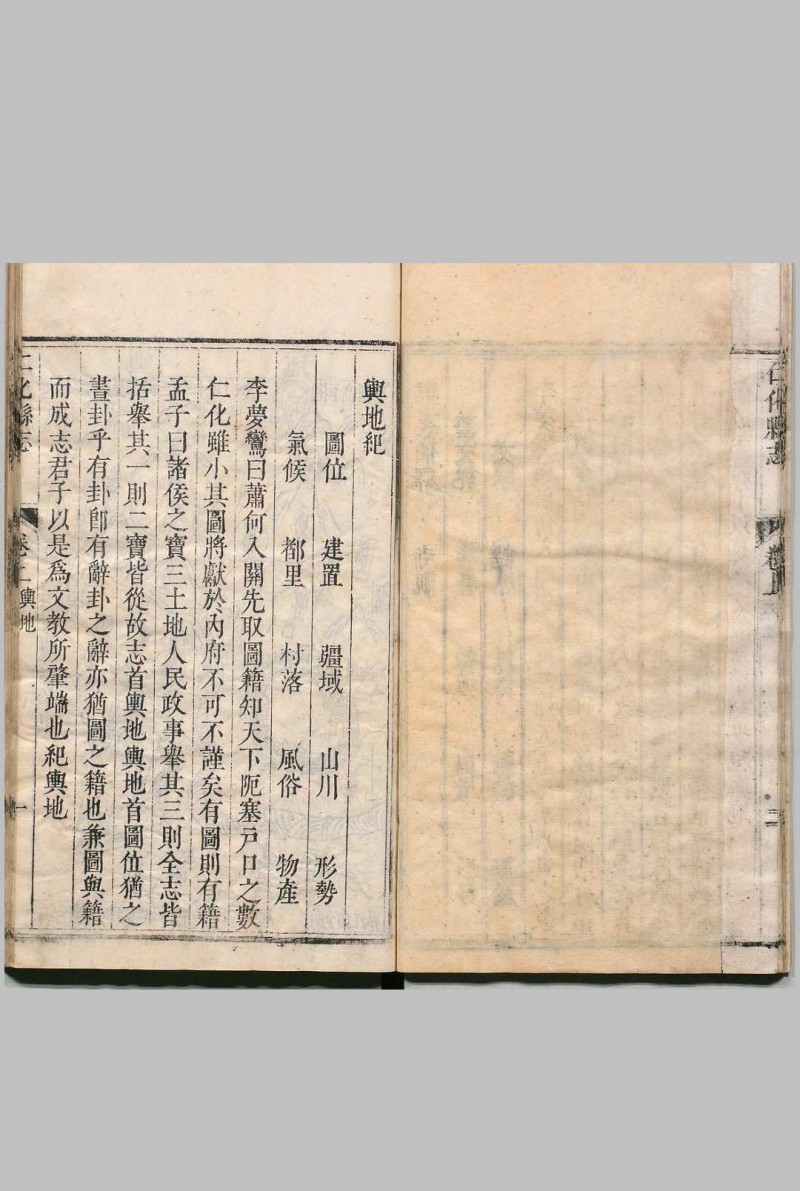 輿地紀
圖位 建置 疆域 山川 形勢
氣候 都里 村落 風俗 物產
李夢鸞曰蕭何入關先取圖籍知天下阨塞戸口之數
仁化雖小其圖將獻於內府不可不謹矣有圖則有籍
孟子曰諸侯之寶三土地人民政事舉其三則全志皆
括舉其一則二寶皆從故志首輿地輿地首圖位猶之
畫卦乎有卦卽有辭卦之辭亦猶圖之籍也兼圖與籍
而成志君子以是爲文教所肇端也紀輿地
仁化縣志 卷二輿地 一
仁化縣志